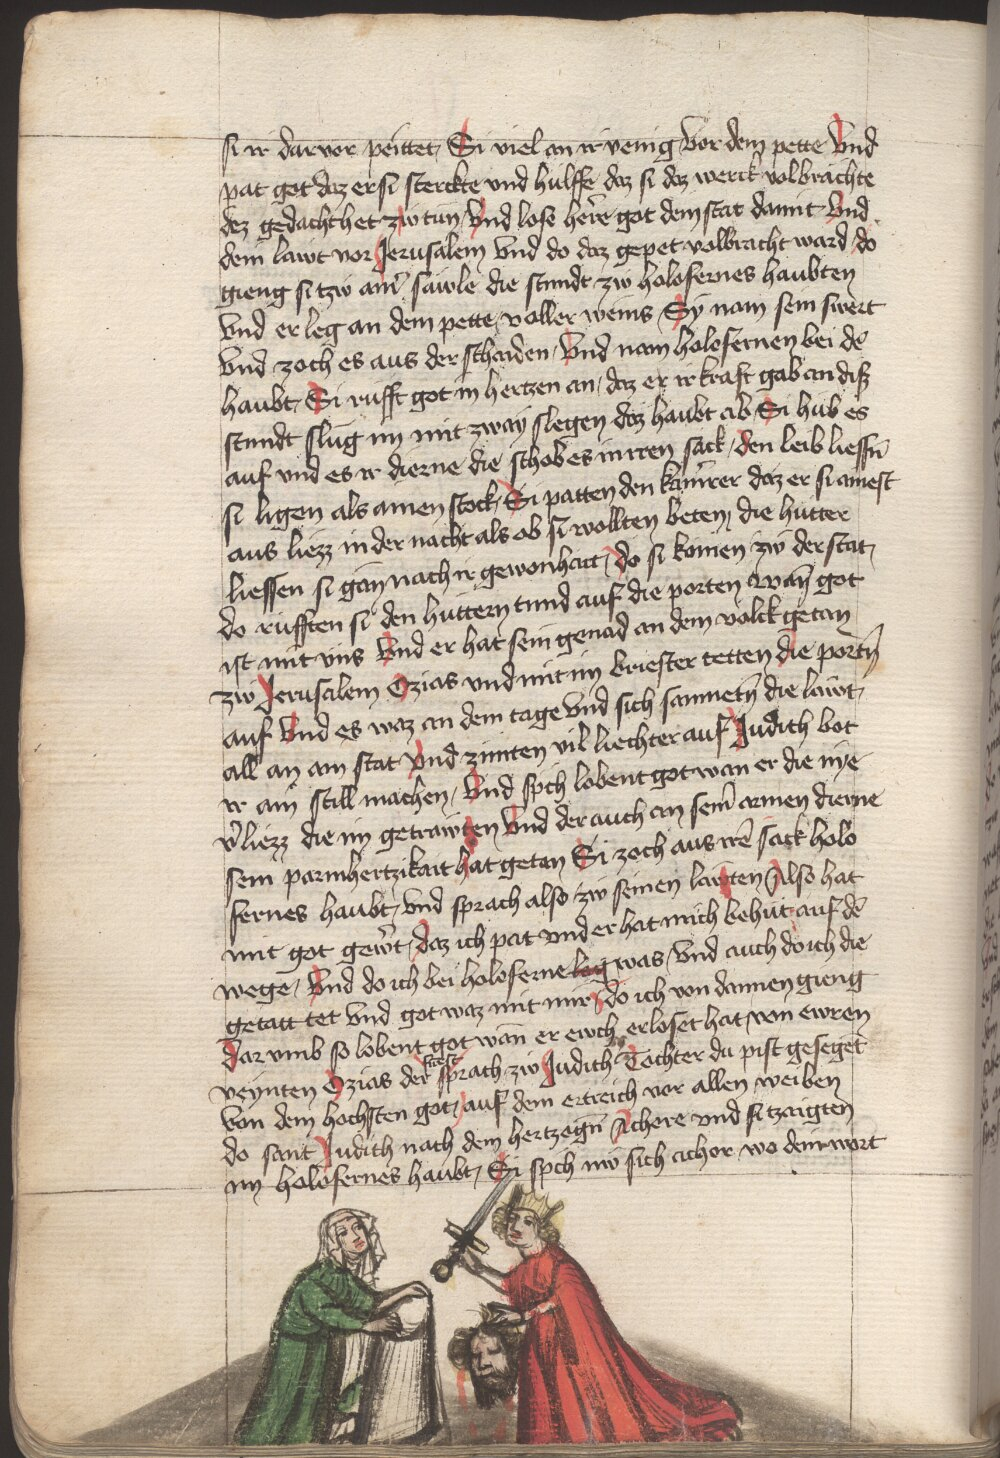 si ir darvor peittet Si viel an ir venig vor dem pette Vnd
pat got daz er si sterckte vnd hulffe daz si daz werck volbrachte
dez gedacht het zw tun Vnd lose here got dem stat damit Vnd
dem lawt vor Jerusalem Vnd do daz gepet volbracht ward do
gieng si tzw ainer sawle die stundt zw holofernes haubten
Vnd er leg an dem pette voller weins Sy nam sein swert
Vnd zoch es aus der schaiden Vnd nam holofernen bei dē
haubt Si rufft got in hertzen an daz er ir kraft gab an diss
stundt slug im mit zway slegen daz haubt ab Si hub es
auf vnd es ir dierne die schob es in iren sack den leib liessn̄
si ligen als ainen stock Si patten den kamrer daz er si
aus liezz in der nacht als ob si wollten beten die hutter
liessen si gan nach ir gewonhait do si komen zw der stat
do rufften si den huttern tund auf die porten wan got
ist mit vns Vnd er hat sein genad an dem volck getan
zw Jerusalem Ozias vnd mit im briester tetten die portn̄
auf Vnd es waz an dem tage Vnd sich sammetn̄ die lawt
all an ain stat Vnd zunten vil liechter auf Judith bot
ir ain still machen Vnd spch lobent got wan er die nye
v̄liezz die im getrawten Vnd der auch an sein̄ armen dierne
sein parmhertzikait hat getan Si zoch aus irē sack holo
fernes haubt vnd sprach also zw seinen lawten Also hat
mit got gewt daz ich pat vnd er hat mich behut auf dē
wege Vnd do ich bei holoferne lag was Vnd auch do ich die
getatt tet Vnd got waz mit mir do ich von dannen gieng
Dar vmb so lobent got wan er ewch erloset hat von ewren
veynten Ozias der furst sprach zw Judith Tochter du pist gesegēt
Von dem hochsten got auf dem ertreich vor allen weiben
do sant Judith nach dem hertzogn̄ Achore vnd si tzaigten
im holofernes haubt Si spch nw sich achor wo dein wort